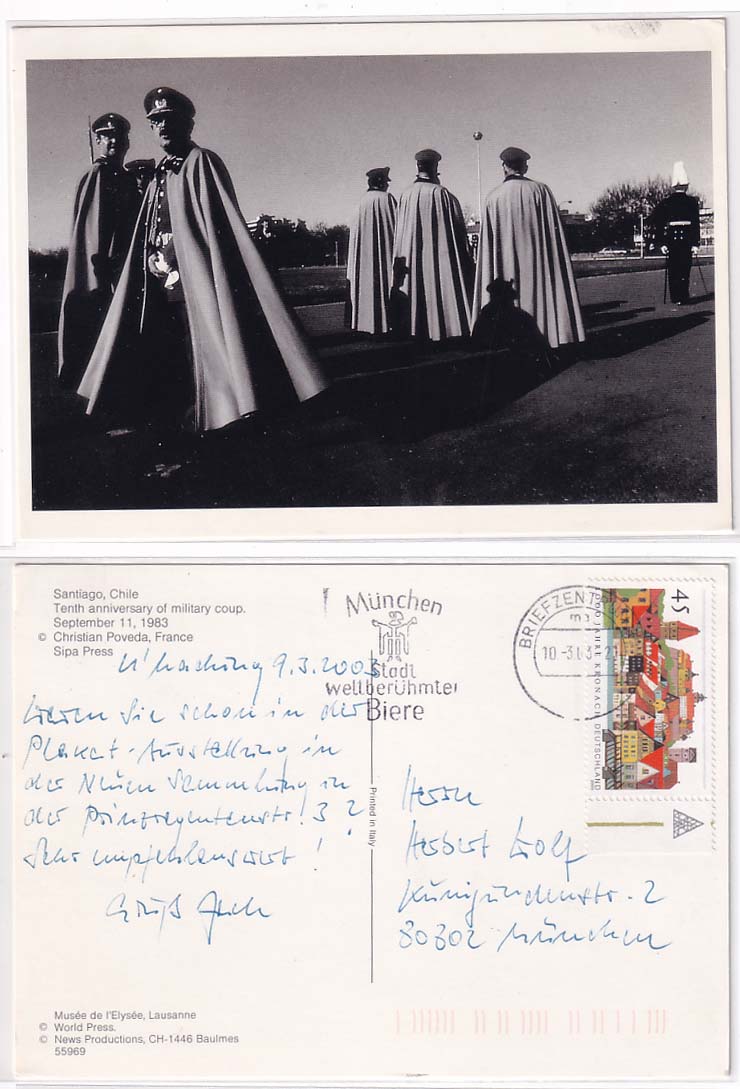 Santiago, Chile
Tenth anniversary of military coup.
September 11, 1983
© Christian Poveda, France
Sipa Press
U'haching 9.3.2003
Waren Sie schon in der
Plakat-Ausstellung in
der Neuen Sammlung in
der Prinzregentenstr. 3?
Sehr empfehlenswert!
Gruß
München
Stadt
weltberühmter
Biere
BRIEFZENTR
10.-3.03-21
45
1000 JAHRE KRONACH DEUTSCHLAND
Printed in Italy
Herrn
Herbert Wolf
Kunigundenstr. 2
80802 München
Musée de l'Elysée, Lausanne
© World Press.
© News Productions, CH-1446 Baulmes
55969